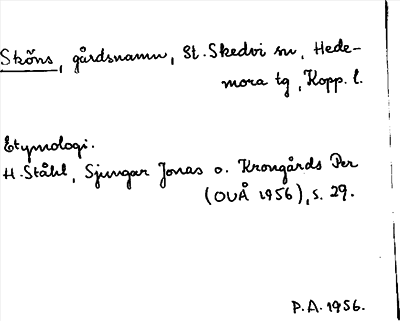 Sköns, gårdsnamn, St. Skedvi sn, Hede-
mora tg, Kopp. l.
Etymologi.
H. Ståhl, Sjungar Jonas o. Krongårds Per
(OUÅ 1956), s. 29.
P.A. 1956.